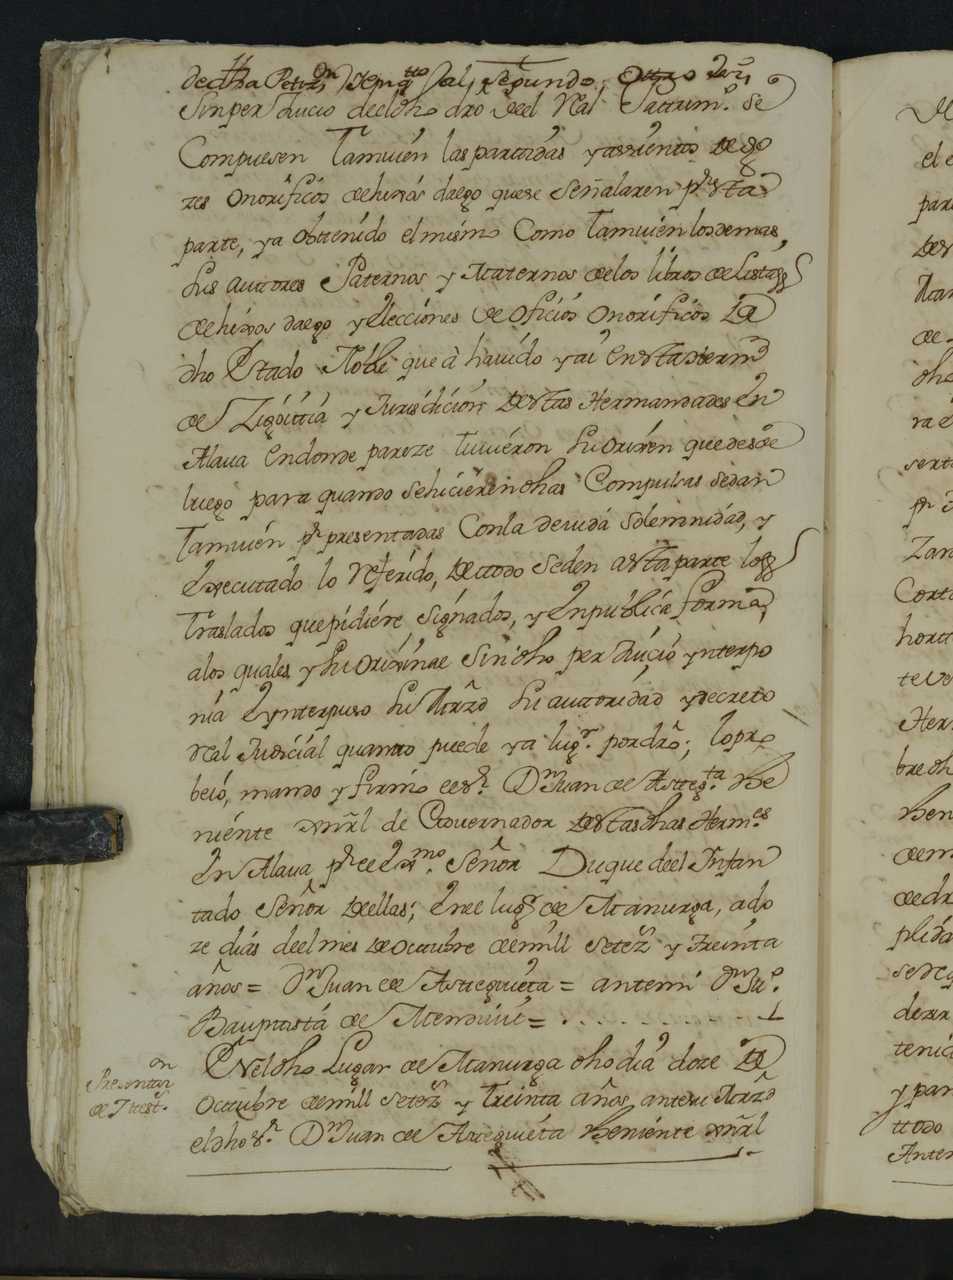 dectha Petizon, Yenqtto al segundo, Ottro Dezi
sinperJuicio declohodro deel Real Patrimo. se
Compulsen Tamvien laspartidas yasientos de ho
res onorificos dehixos dalgo quese señalaren pr esta
parte, ya obttenido elmismo Como Tamvien losdemas,
sus autores Paternos y Maternos delos libros de listas
dehixos dalgo y Elecciones de oficios onorificos De
dho Estado Noble que à havido yai enestaxerm.d
de Zigoittia y Jurisdicion destas Hermandades En
Alava endonde pareze tuvieron su orixen quedesde
luego para quando sehicieren dhas Compulsas sedan
Tamvien pr presentadas Conla devida solemnidad, y
Executado lo referido, de ttodo seden aestaparte los
Traslados quepidiere signados, y Enpublica forma,
alos quales y su orixinal sin dho perJuicio ynterpo
nia Eynterpuso su Mrzd su autoridad ydecreto
Real Judicial quanto puede ya lugr. pordro; lopro
beio, mando y firmó elsr. Dn Juan de Asteg.ta the
niente xnrl de Governador destas dhas Hermes
En Alava pr el Exmo. Señor Duque deel Infan
tado Señor dellas; Enel lugr de Manurga, ado
ze dias deelmes de Octubre demill setezs y treinta
años = Dn Juan de Asteguieta = antemi Dn Jua.
Bauptista de Mendivil = . . . . . . . . . .
Enel dho Lugar de Manurga dho dia doze de
Octubre demill setezs y treinta años, antesu Mrzd
eldho sr. Dn Juan de Asteguieta theniente xnrl
Presentazon
de Ttest.s